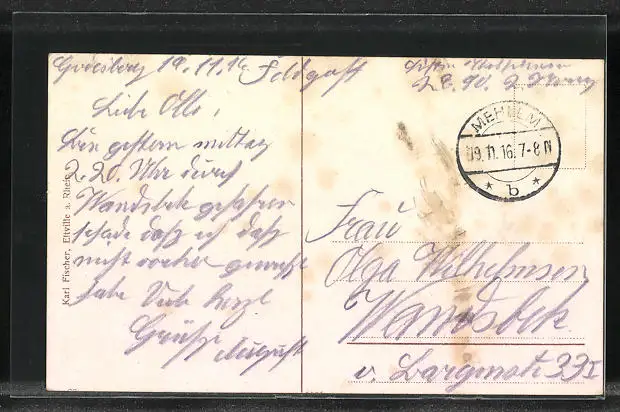 Godesberg 19.11.16 Feldpost
Liebe Olly,
Bin gestern mittag
2.20. Uhr durch
Wandsbek gefahren
schade daß ich daß
nicht vorher gewußt
habe Viele herzl
Grüße
August
Karl Fischer, Eltville a. Rhein
MEHLEM
19.11.16. 7-8 N
* b *
Frau
Olga Wilhelmsen
Wandsbek
v. Bargenstr. 33 I